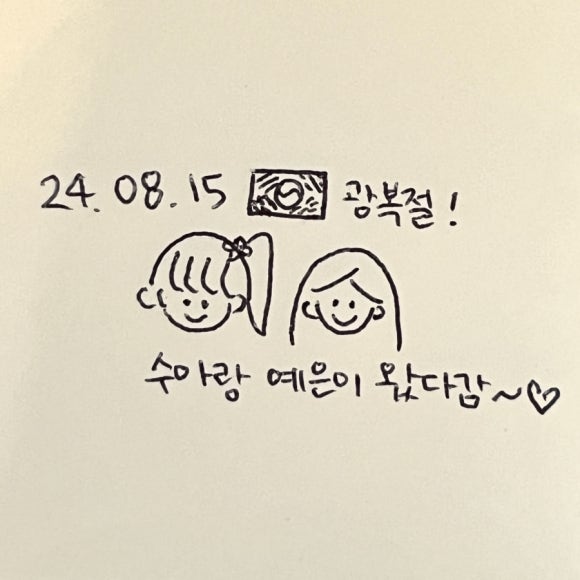 24.08.15 광복절!
수아랑 예은이 왔다감~♡